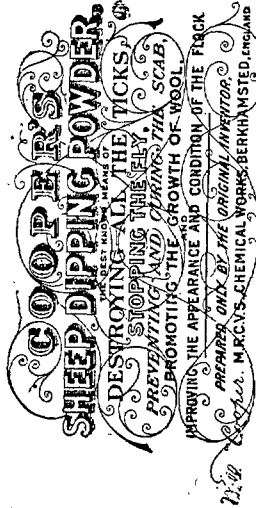 COOPER'S
SHEEP DIPPING POWDER.
THE BEST KNOWN MEANS OF
DESTROYING ALL THE TICKS,
STOPPING THE FLY,
PREVENTING AND CURING THE SCAB,
PROMOTING THE GROWTH OF WOOL,
AND
IMPROVING THE APPEARANCE AND CONDITION OF THE FLOCK
PREPARED ONLY BY THE ORIGINAL INVENTOR,
Wm. Cooper. M.R.C.V.S. CHEMICAL WORKS, BERKHAMSTED, ENGLAND